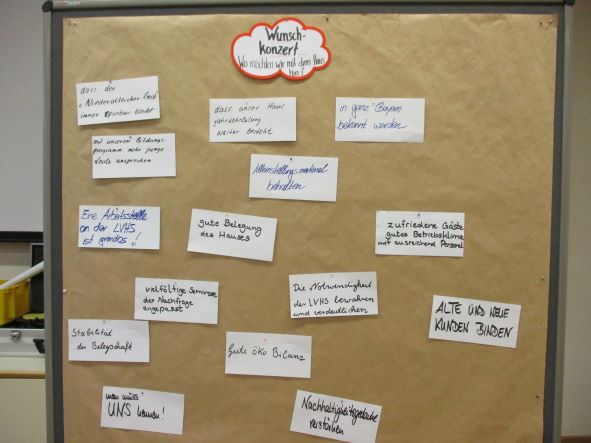 Wunsch-
konzert
Wo möchten wir mit dem Haus
hin?
dass der
"Niederalteicher Geist"
immer spürbar bleibt
dass unser Haus
jahrzehntelang
weiter besteht
in ganz Bayern
bekannt werden
mit unserem Bildungs-
programm mehr junge
Leute ansprechen
Alleinstellungsmerkmal
behalten
Eine Arbeitsstelle
an der LVHS
ist grandios!
gute Belegung
des Hauses
zufriedene Gäste
gutes Betriebsklima
mit ausreichend Personal
vielfältige Seminare
der Nachfrage
angepasst
Die Notwendigkeit
der LVHS bewahren
und verdeutlichen
ALTE UND NEUE
KUNDEN BINDEN
Stabilität
der Belegschaft
Gute öko Bilanz
man muss
UNS kennen!
Nachhaltigkeitsgedanke
verstärken